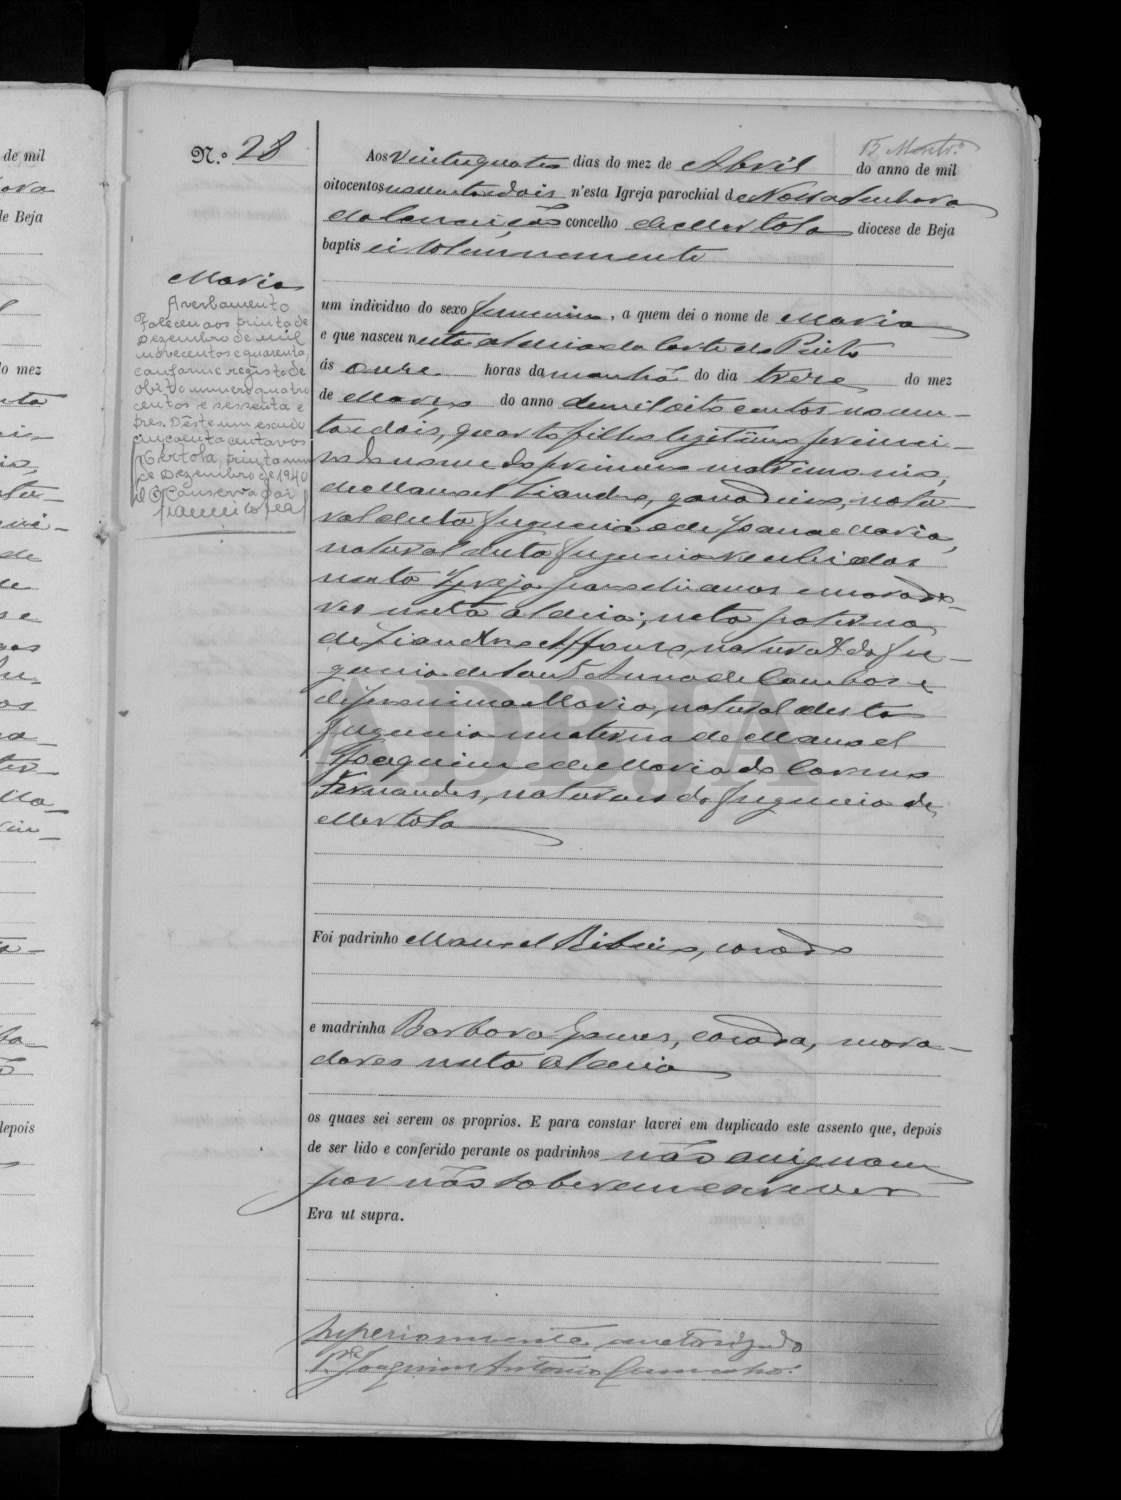 de mil
le Beja
lo mez
depois
N.º 28
B Montrº
Maria
Averbamento
Faleceu aos trinta de
Dezembro de mil
novecentos e quarenta,
conforme registo de
obito numero quatro
centos e sessenta e
tres. Dêste um escudo
cincoenta centavos
Mertola, trinta um
de Dezembro de 1940
O Conservador
Aos vinte quatro dias do mez de Abril do anno de mil
oitocentos noventa e dois n'esta Igreja parochial de Nossa Senhora
da Conceição concelho de Mertola diocese de Beja
baptisei solemnemente
um individuo do sexo femenino, a quem dei o nome de Maria
e que nasceu nesta aldeia da Corte do Pinto
ás onze horas da manhã do dia treze do mez
de Março do anno de mil oito centos noven-
ta e dois, quarto filho legitimo primei-
ro do nome do primeiro matrimonio,
de Manoel Liandro, ganadeiro, natu-
ral desta freguezia e de Joana Maria,
natural desta freguezia recebidos
nesta Igreja parochianos e morado-
res nesta aldeia; neta paterna
de Liandro Affonso, natural da fre-
guezia de Sant'Anna de Cambas e
de Jeronima Maria, natural desta
freguezia e materna de Manoel
Joaquim e de Maria do Carmo
Fernandes, naturaes da freguezia de
Mertola
Foi padrinho Manoel Ribeiro, casado
e madrinha Barbara Gomes, casada, mora-
dores nesta aldeia
os quaes sei serem os proprios. E para constar lavrei em duplicado este assento que, depois
de ser lido e conferido perante os padrinhos não assignam
por não saberem escrever
Era ut supra.
Superiormente auctorizado
Pe. Joaquim Antonio
ADBJA